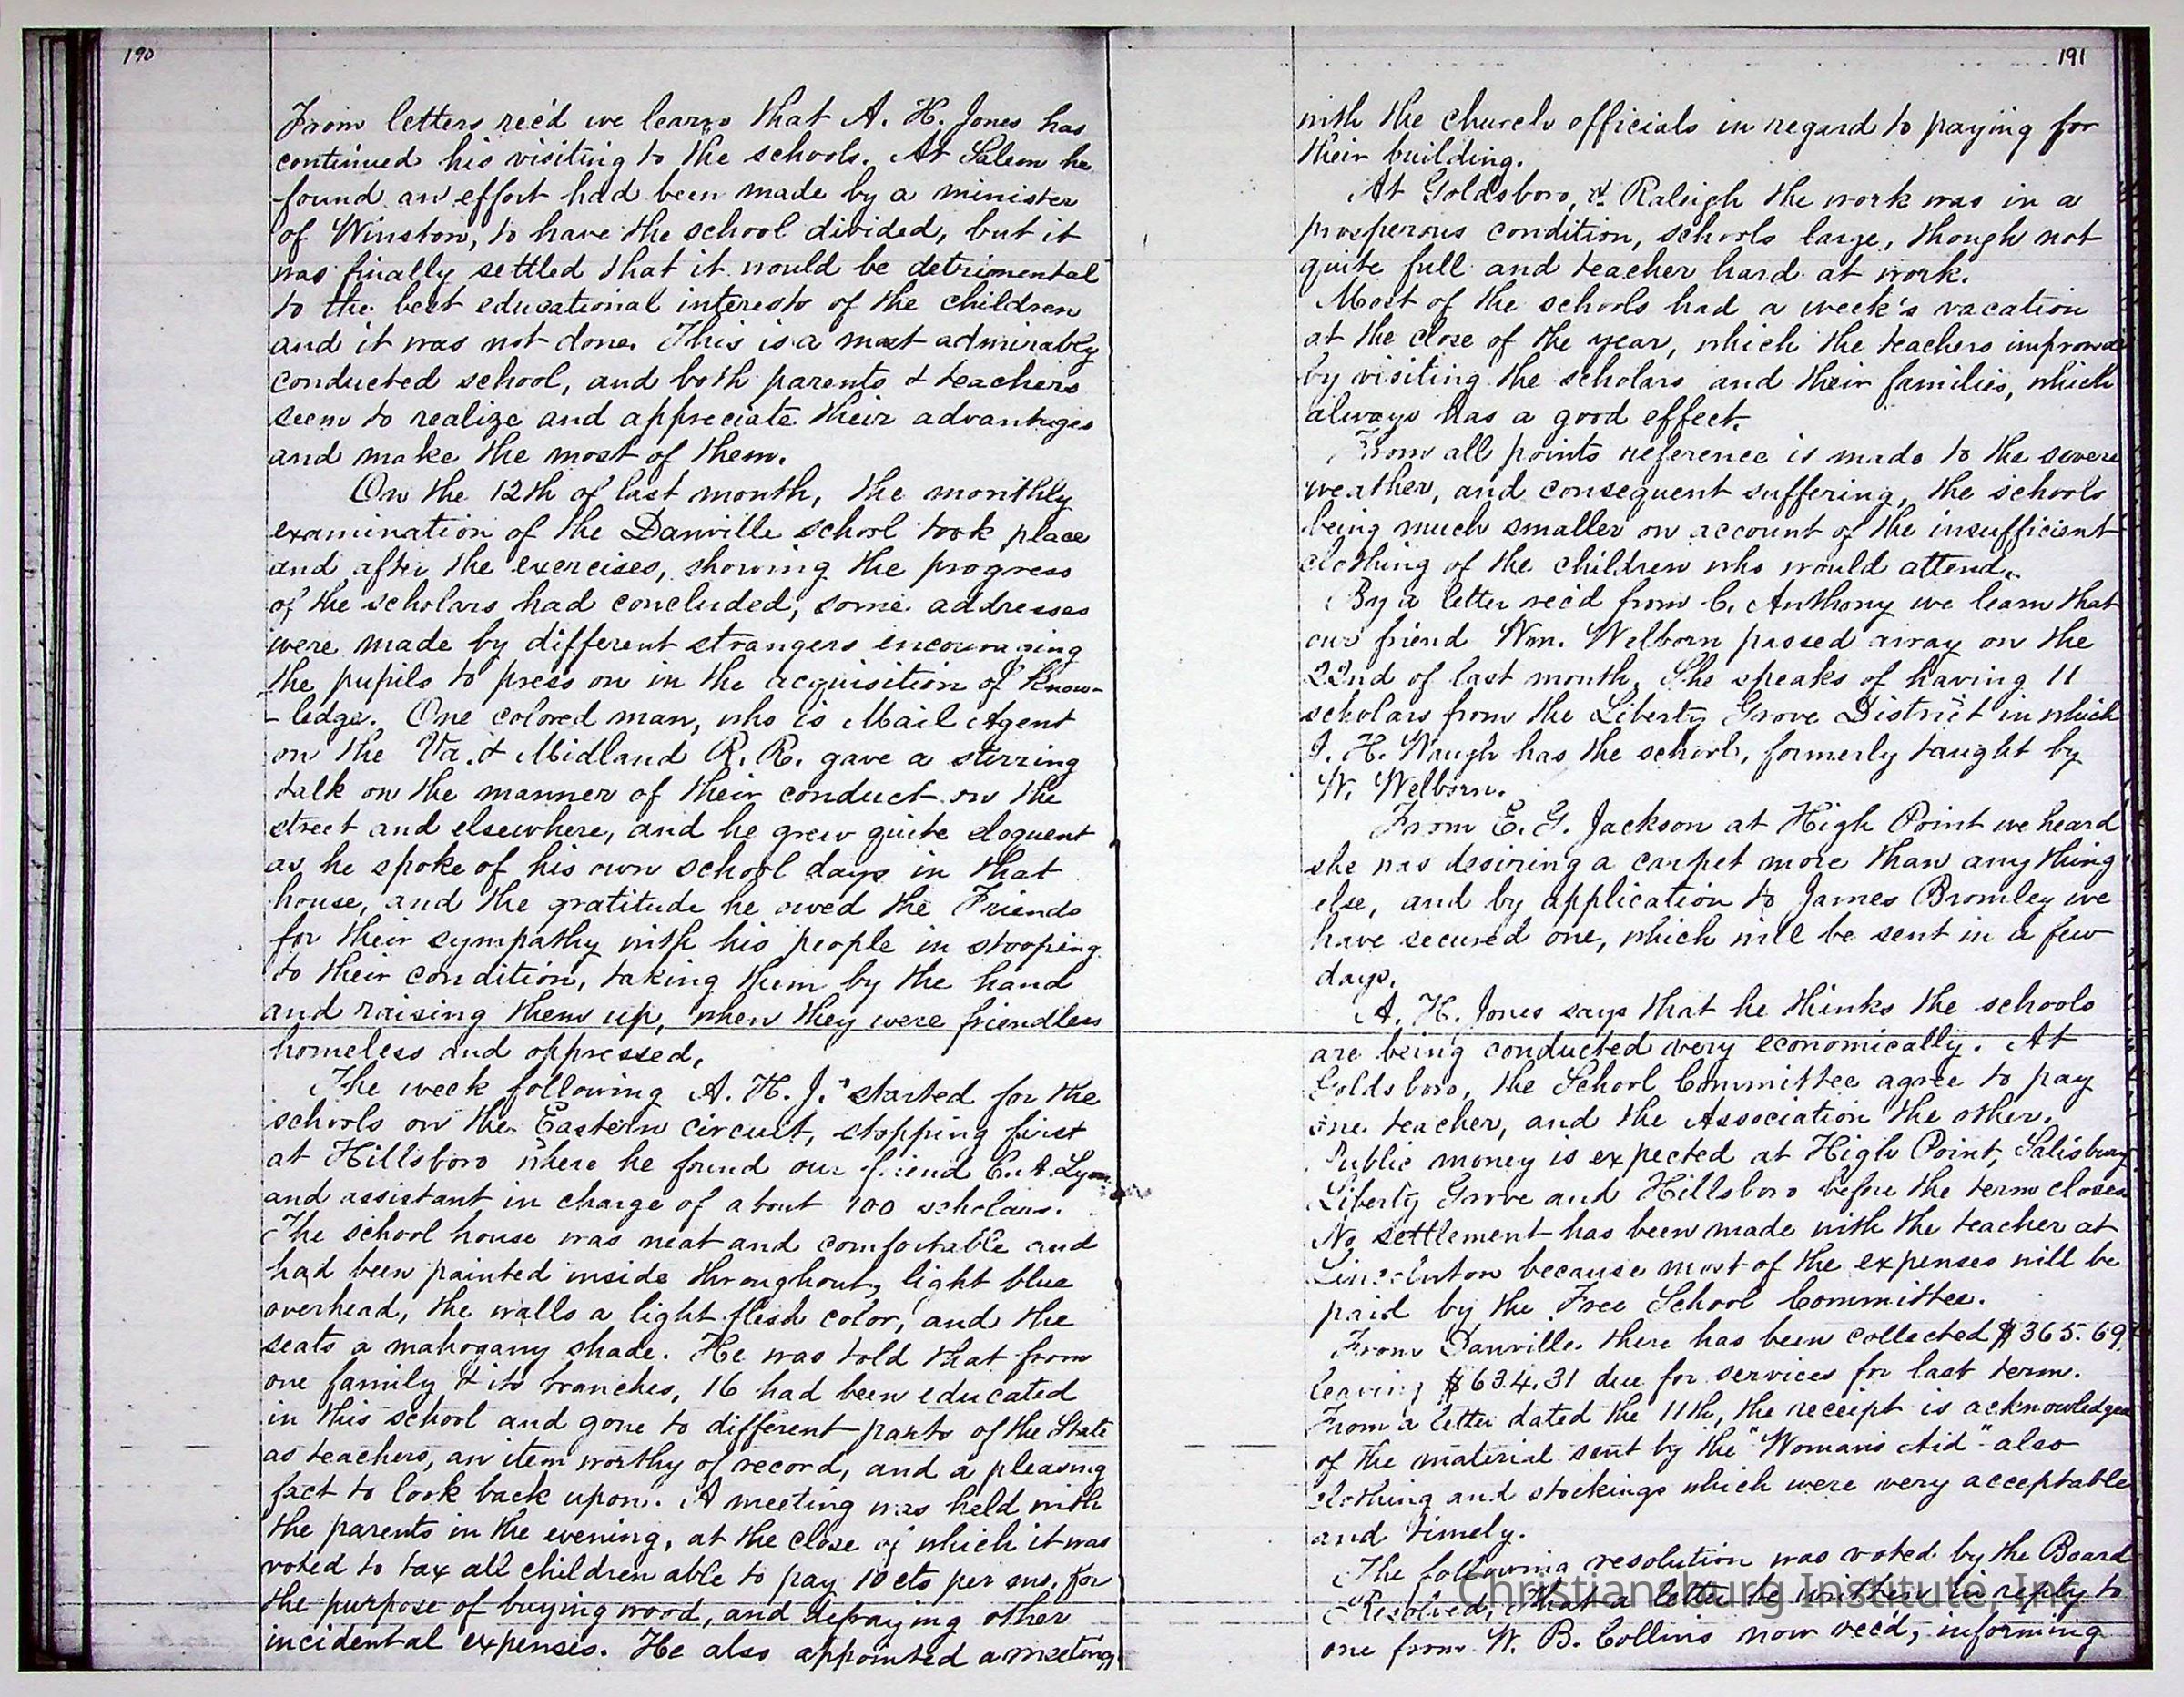 190
From letters rec'd we learn that A. H. Jones has
continued his visiting to the schools. At Salem he
found an effort had been made by a minister
of Winston, to have the school divided, but it
was finally settled that it would be detrimental
to the best educational interests of the children
and it was not done. This is a most admirably
conducted school, and both parents & teachers
seem to realize and appreciate their advantages
and make the most of them.
On the 12th of last month, the monthly
examination of the Danville school took place
and after the exercises, showing the progress
of the scholars had concluded, some addresses
were made by different strangers encouraging
the pupils to press on in the acquisition of know-
-ledge. One colored man, who is Mail Agent
on the Va. & Midland R. R. gave a stirring
talk on the manner of their conduct on the
street and elsewhere, and he grew quite eloquent
as he spoke of his own school days in that
house, and the gratitude he owed the Friends
for their sympathy with his people in stooping
to their condition, taking them by the hand
and raising them up, when they were friendless
homeless and oppressed.
The week following A. H. J. started for the
schools on the Eastern circuit, stopping first
at Hillsboro where he found our friend C. A. Lyon
and assistant in charge of about 100 scholars.
The school house was neat and comfortable and
had been painted inside throughout, light blue
overhead, the walls a light flesh color, and the
seats a mahogany shade. He was told that from
one family & its branches, 16 had been educated
in this school and gone to different parts of the State
as teachers, an item worthy of record, and a pleasing
fact to look back upon. A meeting was held with
the parents in the evening, at the close of which it was
voted to tax all children able to pay 10 cts per mo. for
the purpose of buying wood, and defraying other
incidental expenses. He also appointed a meeting
191
with the church officials in regard to paying for
their building.
At Goldsboro, & Raleigh the work was in a
prosperous condition, schools large, though not
quite full and teacher hard at work.
Most of the schools had a week's vacation
at the close of the year, which the teachers improved
by visiting the scholars and their families, which
always has a good effect.
From all points reference is made to the severe
weather, and consequent suffering, the schools
being much smaller on account of the insufficient
clothing of the children who would attend.
By a letter rec'd from C. Anthony we learn that
our friend Wm. Welborn passed away on the
22nd of last month. She speaks of having 11
scholars from the Liberty Grove District in which
J. H. Waugh has the school, formerly taught by
W. Welborn.
From E. G. Jackson at High Point we heard
she was desiring a carpet more than any thing
else, and by application to James Bromley we
have secured one, which will be sent in a few
days.
A. H. Jones says that he thinks the schools
are being conducted very economically. At
Goldsboro, the School Committee agree to pay
one teacher, and the Association the other.
Public money is expected at High Point, Salisbury
Liberty Grove and Hillsboro before the term closes
No settlement has been made with the teacher at
Lincolnton because most of the expenses will be
paid by the Free School Committee.
From Danville there has been collected $365.69
leaving $634.31 due for services for last term.
From a letter dated the 11th, the receipt is acknowledged
of the material sent by the "Woman's Aid" also
clothing and stockings which were very acceptable
and timely.
The following resolution was voted by the Board
Resolved, that a letter be written in reply to
one from W. B. Collins now rec'd, informing
Christiansburg Institute, Inc.